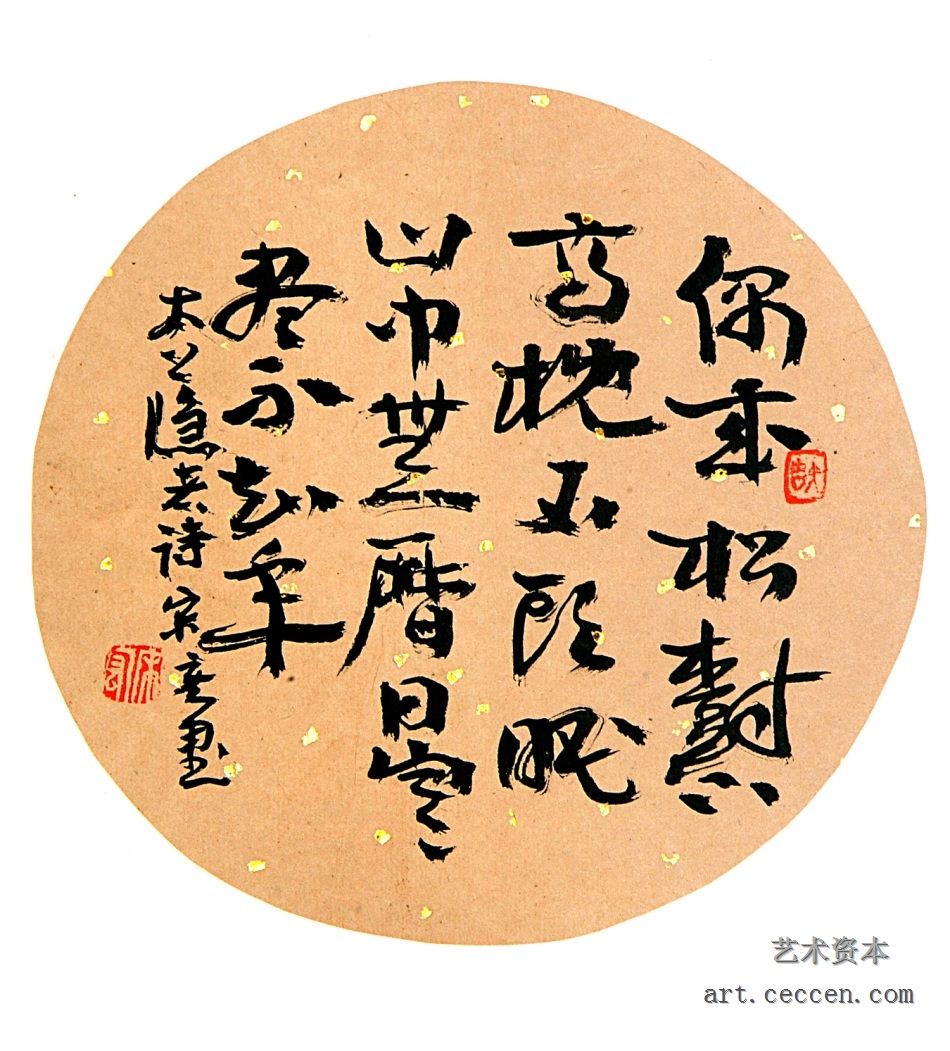 偶来松樹下
高枕石頭眠
山中無曆日寒
盡不知年
太上隱者詩宋墨
艺术资本
art.ceccen.com